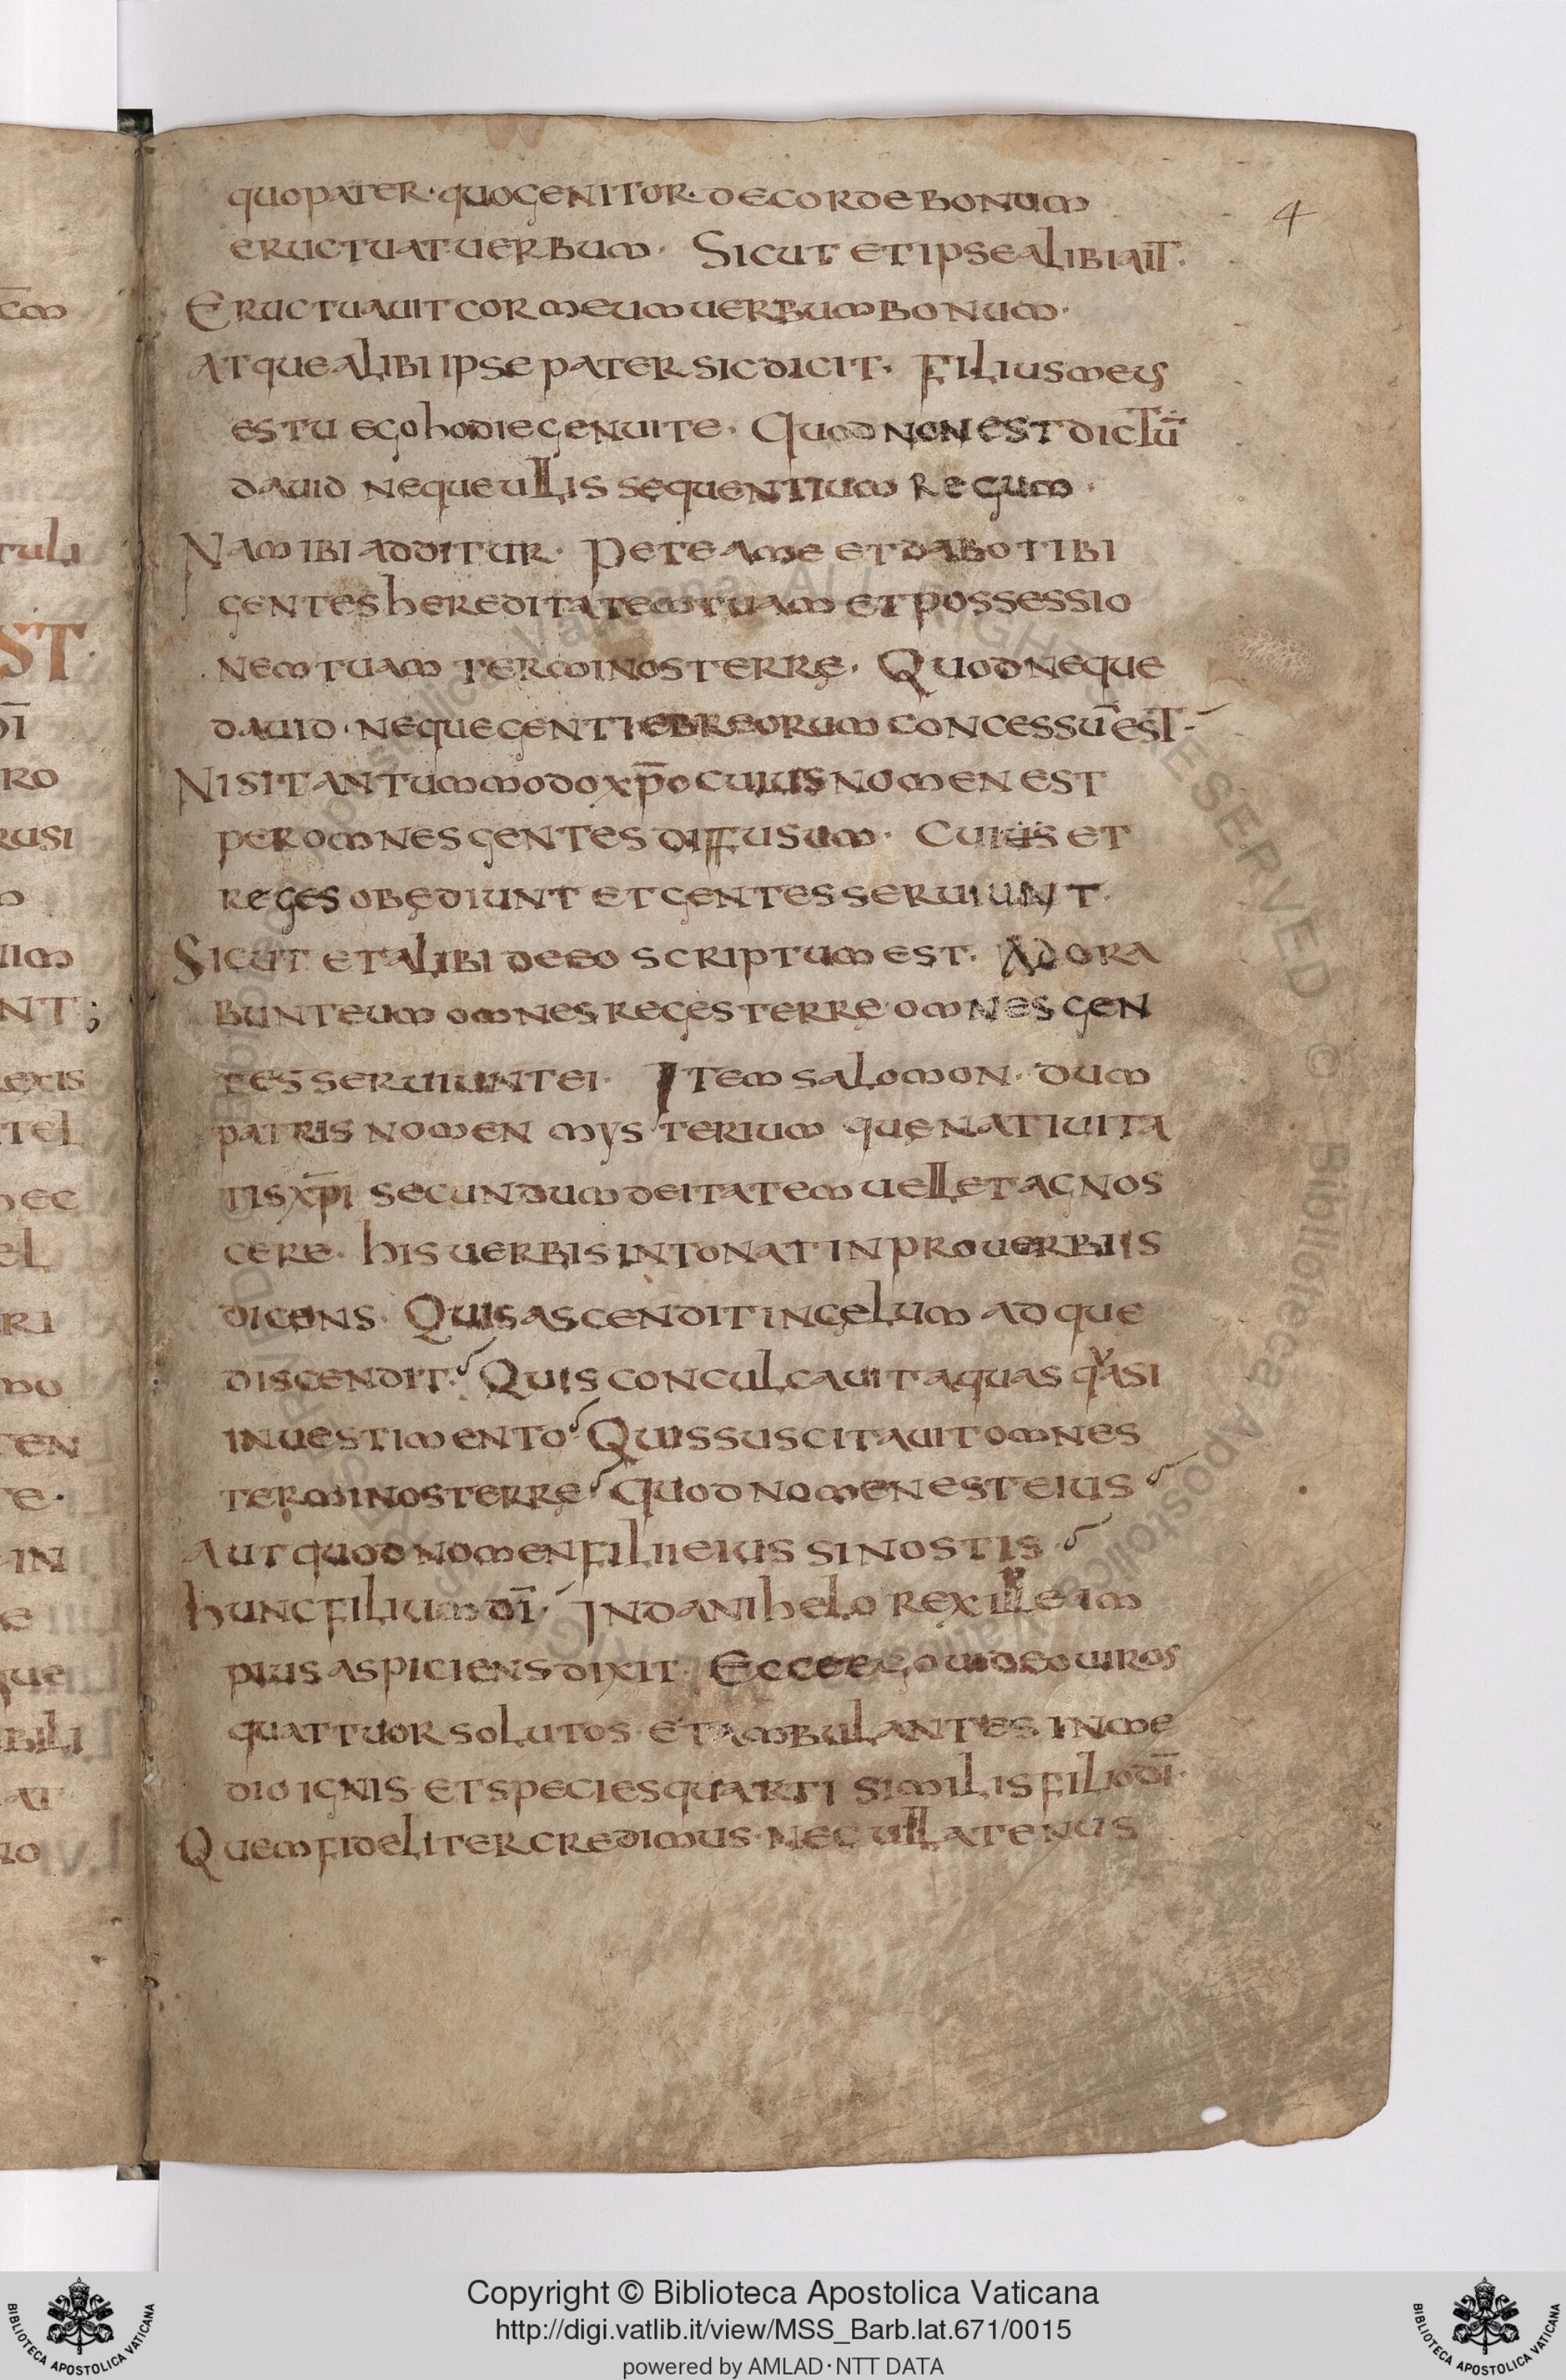 4
quo pater · quo genitor · de corde bonum
eructuat uerbum · Sicut et ipse alibi ait ·
Eructuauit cor meum uerbum bonum ·
atque alibi ipse pater sic dicit · Filius meus
es tu ego hodie genui te · Quod non est dictū
dauid neque ullis sequentium regum ·
Nam ibi additur · Pete a me et dabo tibi
gentes hereditatem tuam et possessio
nem tuam terminos terrę · Quod neque
dauid · neque genti ebreorum concessū est ·
Nisi tantummodo xp̄o cuius nomen est
per omnes gentes diffusum · Cuius et
reges obędiunt et gentes seruiunt ·
Sicut et alibi de eo scriptum est · Adora
bunt eum omnes reges terrę omnes gen
tes seruiunt ei · Item salomon · dum
patris nomen mysterium quę natiuita
tis xp̄i secundum deitatem uellet agnos
cere · his uerbis intonat in prouerbiis
dicens · Quis ascendit in cęlum adque
discendit · Quis conculcauit aquas quasi
in uestimento · Quis suscitauit omnes
terminos terrę · Quod nomen est eius
Aut quod nomen filii eius si nostis ·
hunc filium dī · In danihelo rex ille im
pius aspiciens dixit · Ecce ego uideo uiros
quattuor solutos et ambulantes in me
dio ignis et species quarti similis filio dī ·
Quem fideliter credimus · nec ullatenus
Copyright © Biblioteca Apostolica Vaticana
http://digi.vatlib.it/view/MSS_Barb.lat.671/0015
powered by AMLAD·NTT DATA
BIBLIOTECA APOSTOLICA VATICANA
BIBLIOTECA APOSTOLICA VATICANA